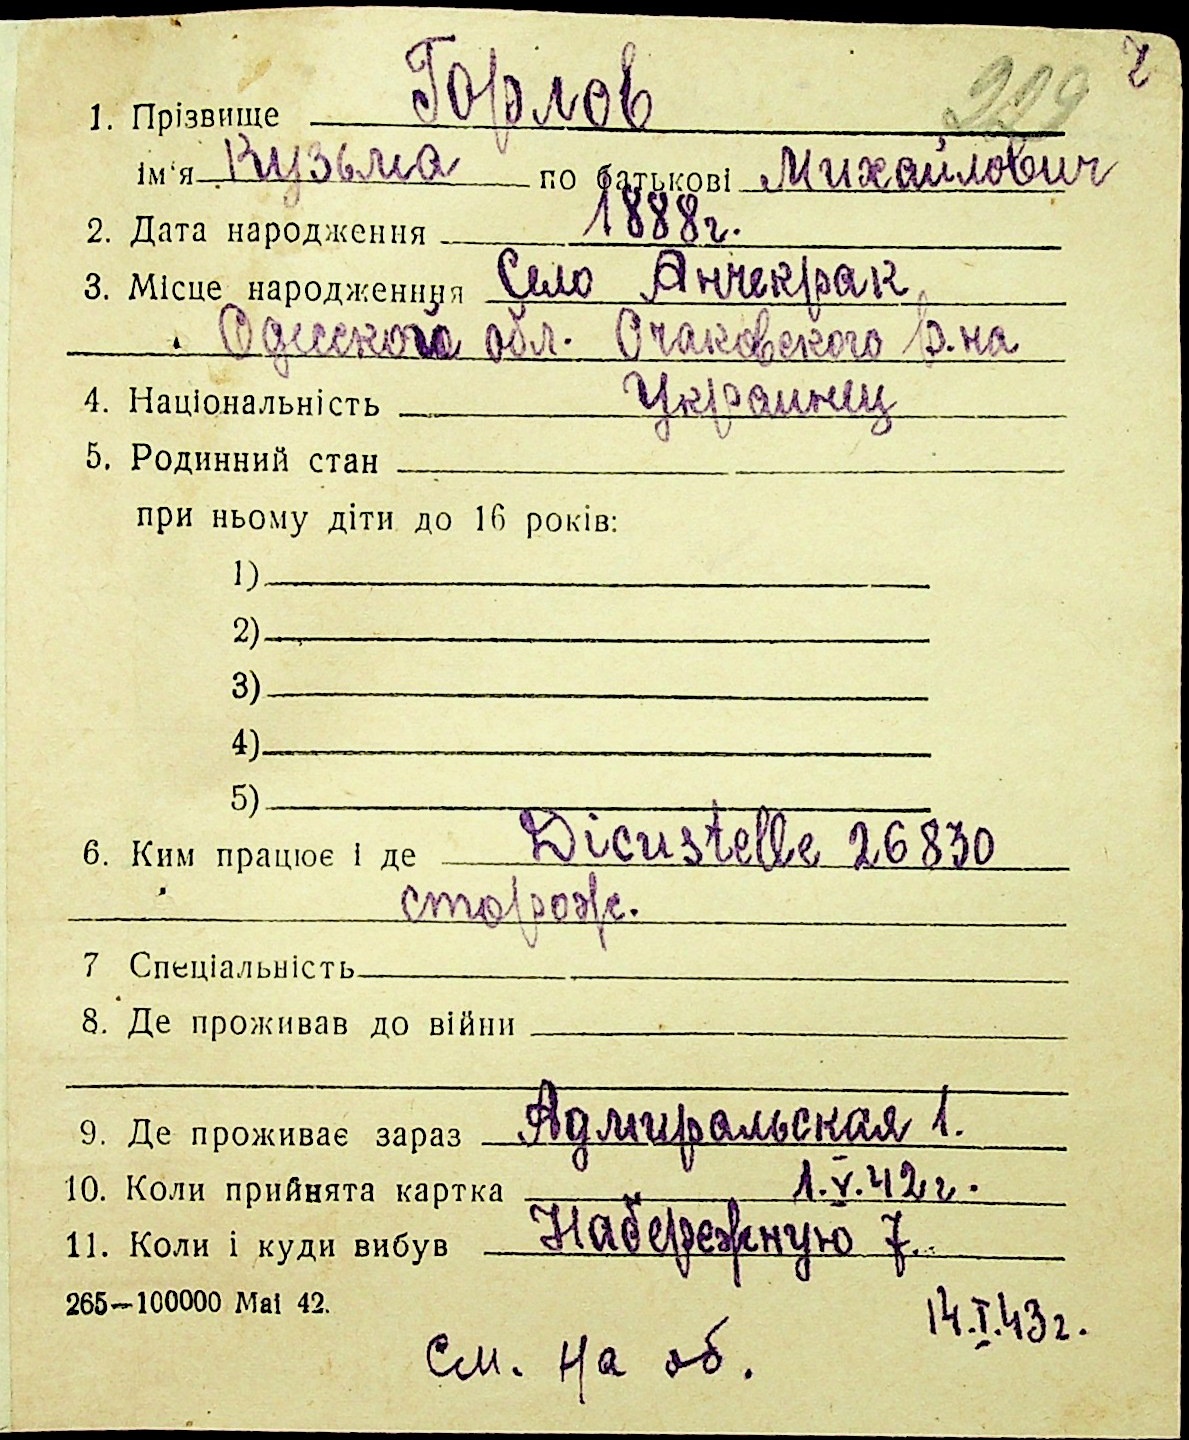 2
229
1. Прізвище Горлов
ім'я Кузьма по батькові Михайлович
2. Дата народження 1888г.
3. Місце народженння Село Анчекрак
Одесского обл. Очаковского р-на
4. Національність Украинец
5. Родинний стан
при ньому діти до 16 років:
1)
2)
3)
4)
5)
6. Ким працює і де Dicustelle 26830
сторож.
7 Спеціальність
8. Де проживав до війни
9. Де проживає зараз Адмиральская 1.
10. Коли прийнята картка 1.V.42г.
11. Коли і куди вибув Набережную 7.
265—100000 Mai 42.
14.I.43г.
См. на об.